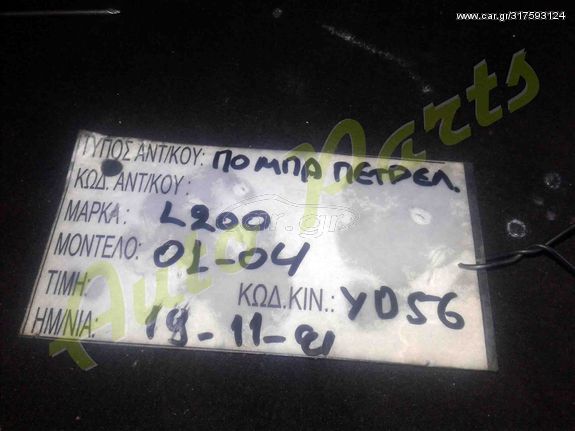 www.car.gr/317593124
ΤΥΠΟΣ ΑΝΤ/ΚΟΥ: ΠΟΜΠΑ ΠΕΤΡΕΛ.
ΚΩΔ. ΑΝΤ/ΚΟΥ:
ΜΑΡΚΑ: L200
ΜΟΝΤΕΛΟ: 01-04
ΤΙΜΗ: ΚΩΔ.ΚΙΝ.: YD56
ΗΜ/ΝΙΑ: 19-11-21
Auto Parts
car.gr